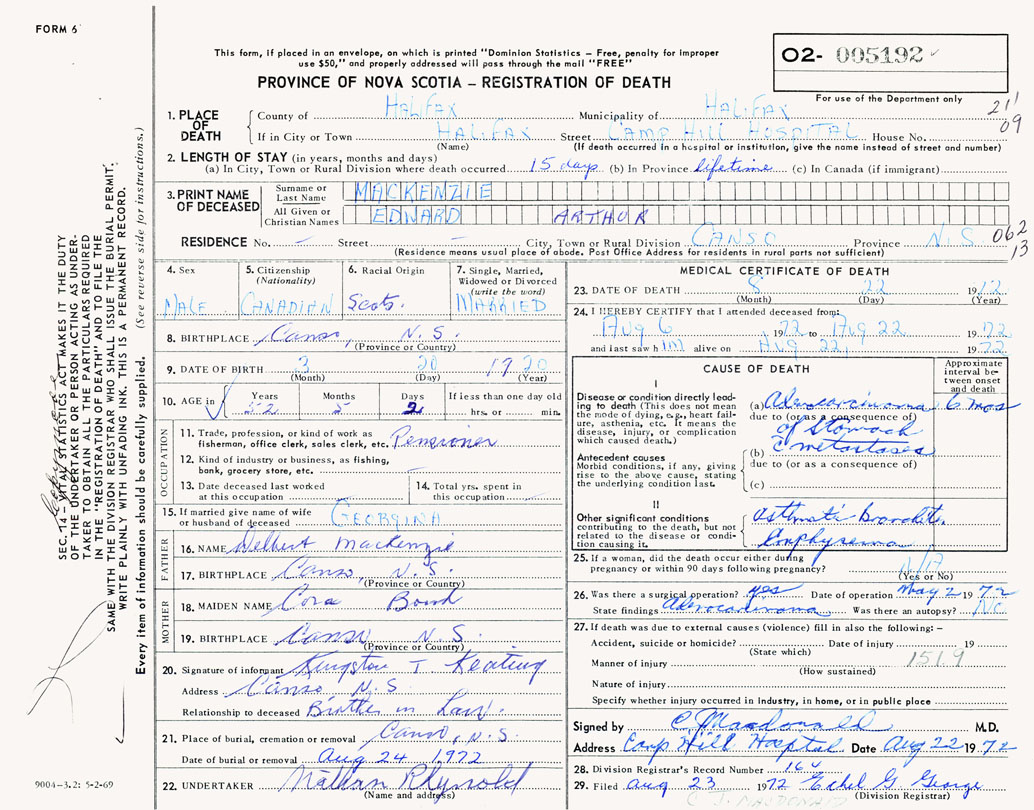 FORM 6
This form, if placed in an envelope, on which is printed "Dominion Statistics – Free, penalty for improper
use $50," and properly addressed will pass through the mail "FREE"
O2- 005192
PROVINCE OF NOVA SCOTIA – REGISTRATION OF DEATH
For use of the Department only
1. PLACE OF DEATH
County of Halifax Municipality of Halifax
21'
09
If in City or Town Halifax Street Camp Hill Hospital House No.
(Name) (If death occurred in a hospital or institution, give the name instead of street and number)
2. LENGTH OF STAY (in years, months and days)
(a) In City, Town or Rural Division where death occurred 15 days (b) In Province lifetime (c) In Canada (if immigrant)
3. PRINT NAME OF DECEASED
Surname or Last Name MACKENZIE
All Given or Christian Names EDWARD ARTHUR
RESIDENCE No. – Street – City, Town or Rural Division CANSO Province N.S.
062
13
(Residence means usual place of abode. Post Office Address for residents in rural parts not sufficient)
4. Sex
MALE
5. Citizenship
(Nationality)
CANADIAN
6. Racial Origin
Scots.
7. Single, Married,
Widowed or Divorced
(write the word)
MARRIED
8. BIRTHPLACE Canso, N.S.
(Province or Country)
9. DATE OF BIRTH 3 20 1920
(Month) (Day) (Year)
10. AGE in
Years Months Days If less than one day old
52 5 2 hrs. or min.
OCCUPATION
11. Trade, profession, or kind of work as
fisherman, office clerk, sales clerk, etc. Pensioner
12. Kind of industry or business, as fishing,
bank, grocery store, etc. –
13. Date deceased last worked
at this occupation
14. Total yrs. spent in
this occupation
15. If married give name of wife
or husband of deceased GEORGINA
FATHER
16. NAME Delbert Mackenzie
17. BIRTHPLACE Canso, N.S.
(Province or Country)
MOTHER
18. MAIDEN NAME Cora
19. BIRTHPLACE Canso N.S.
(Province or Country)
20. Signature of informant Kingston T. Keating
Address Canso N.S.
Relationship to deceased Brother in Law.
21. Place of burial, cremation or removal Canso, N.S.
Date of burial or removal Aug 24, 1972
22. UNDERTAKER
(Name and address)
MEDICAL CERTIFICATE OF DEATH
23. DATE OF DEATH 8 22 1972
(Month) (Day) (Year)
24. I HEREBY CERTIFY that I attended deceased from:
Aug 6 1972 to Aug 22 1972
and last saw him alive on Aug 22, 1972
CAUSE OF DEATH
Approximate
interval be-
tween onset
and death
I
Disease or condition directly lead-
ing to death (This does not mean
the mode of dying, e.g., heart fail-
ure, asthenia, etc. It means the
disease, injury, or complication
which caused death.)
(a) Adenocarcinoma 6 mos
due to (or as a consequence of)
of Stomach
Antecedent causes
Morbid conditions, if any, giving
rise to the above cause, stating
the underlying condition last.
(b) c metastases
due to (or as a consequence of)
(c)
II
Other significant conditions
contributing to the death, but not
related to the disease or condi-
tion causing it.
Asthmatic Bronchitis
Emphysema
25. If a woman, did the death occur either during
pregnancy or within 90 days following pregnancy? N/A
(Yes or No)
26. Was there a surgical operation? yes Date of operation May 2 1972
State findings Adenocarcinoma Was there an autopsy? No
27. If death was due to external causes (violence) fill in also the following: –
Accident, suicide or homicide? Date of injury 19
(State which)
1519
Manner of injury
(How sustained)
Nature of injury
Specify whether injury occurred in Industry, in home, or in public place
Signed by C Macdonald M.D.
Address Camp Hill Hospital Date Aug 22 1972
28. Division Registrar's Record Number 164
29. Filed Aug 23 1972 Ethel G George
(Division Registrar)
C J MACDONALD
SEC. 14 – VITAL STATISTICS ACT MAKES IT THE DUTY
OF THE UNDERTAKER OR PERSON ACTING AS UNDER-
TAKER TO OBTAIN ALL THE PARTICULARS REQUIRED
IN THE "REGISTRATION OF DEATH" AND TO FILE THE
SAME WITH THE DIVISION REGISTRAR WHO SHALL ISSUE THE BURIAL PERMIT.
WRITE PLAINLY WITH UNFADING INK. THIS IS A PERMANENT RECORD.
Every item of information should be carefully supplied. (See reverse side for instructions.)
9004-3.2: 5-2-69